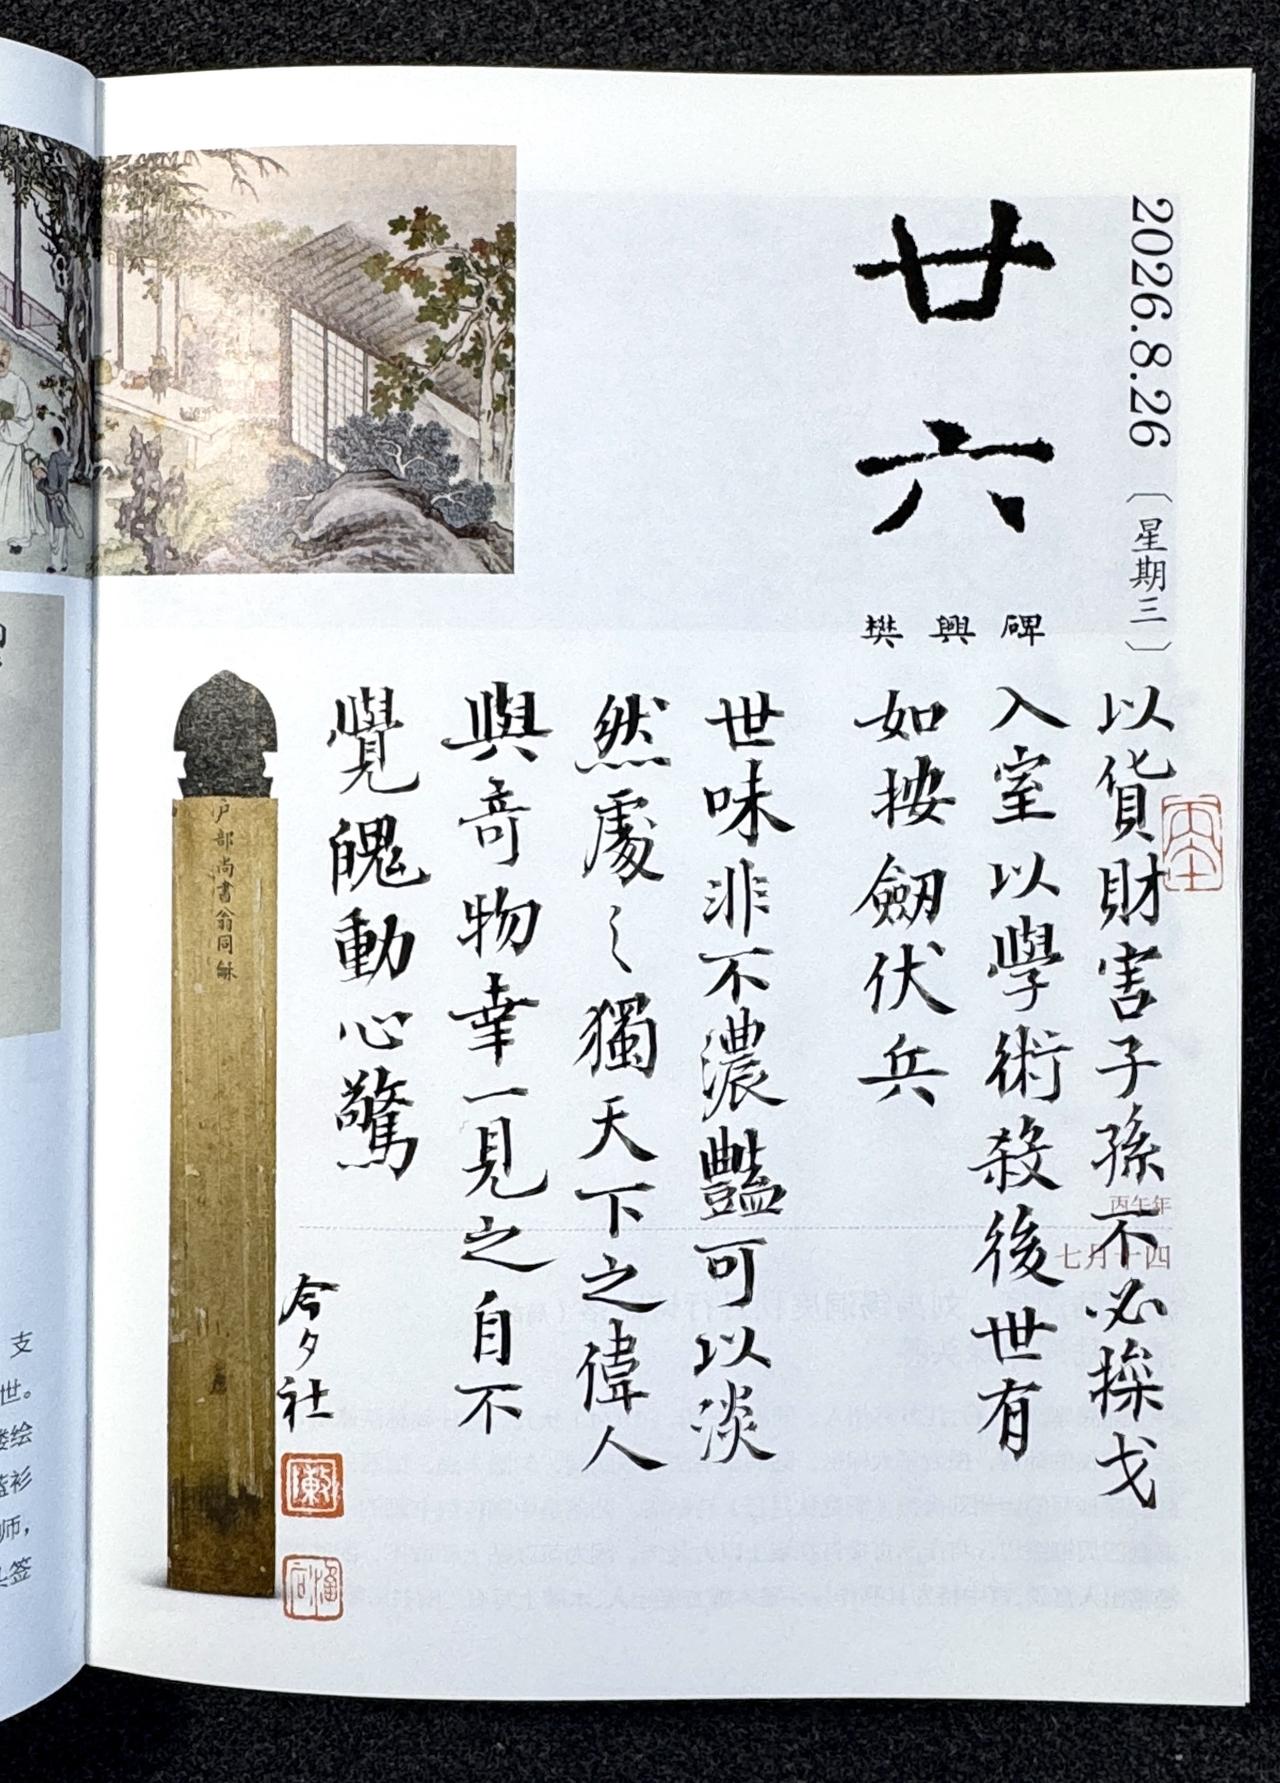 2026.8.26〔星期三〕
廿六
樊興碑
以貨財害子孫不必操戈
入室以學術殺後世有
如按劒伏兵
世味非不濃豔可以淡
然處之獨天下之偉人
與奇物幸一見之自不
覺魄動心驚
今夕社
丙午年
七月十四
户部尚書翁同龢
支
世。
绘
衫
师，
签